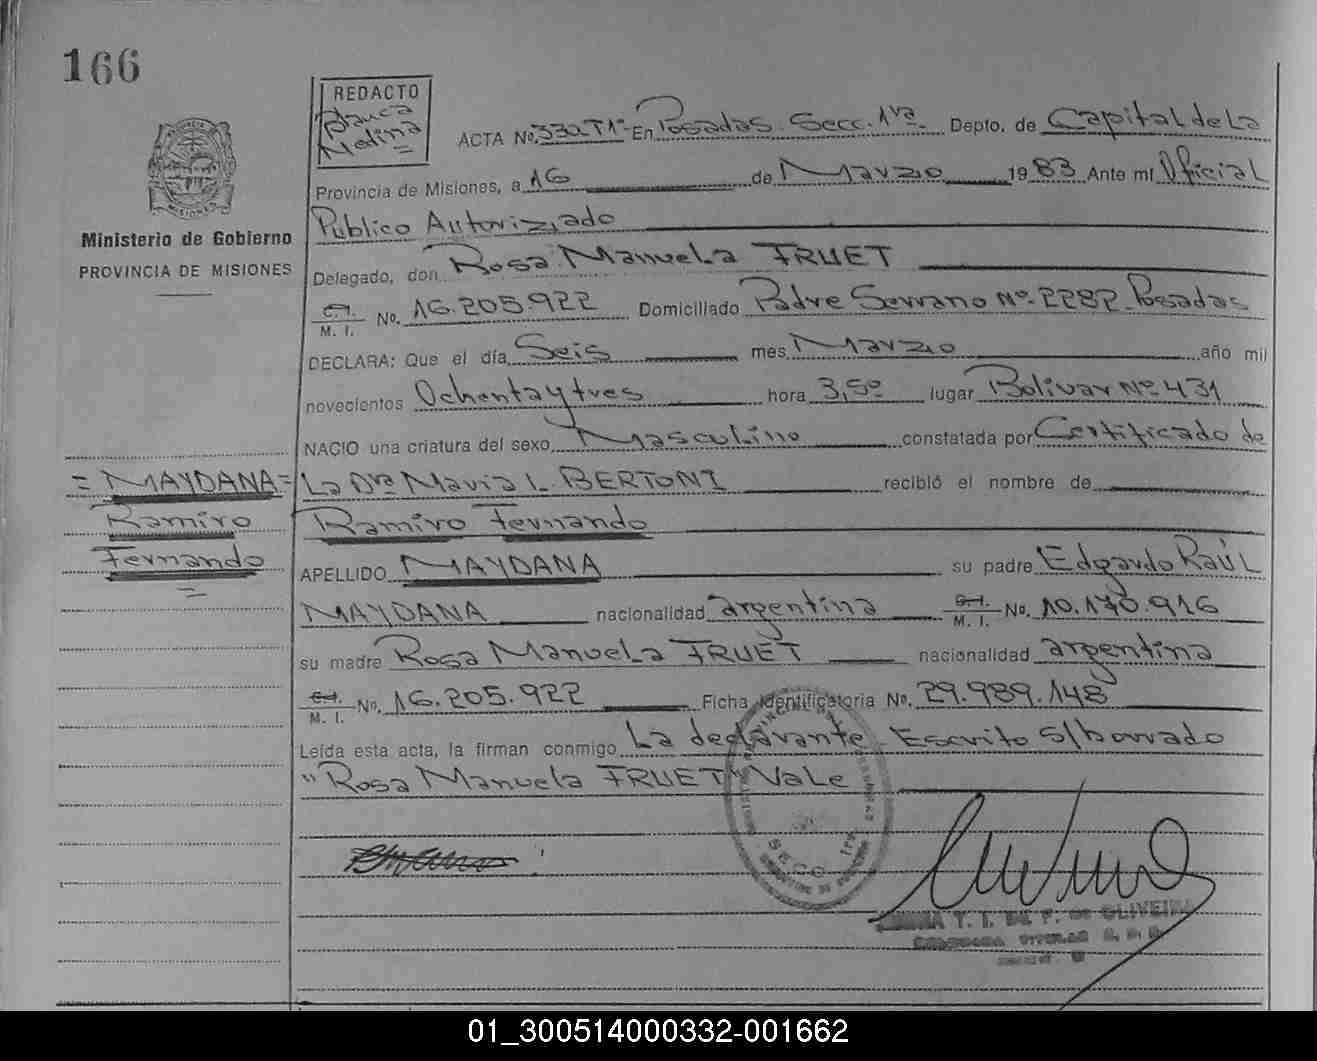 166
REDACTO
Blanca
Medina
ACTA No. 332 T1º En Posadas. Secc. 1ra Depto. de Capital de La
Provincia de Misiones, a 16 de Marzo 1983 Ante mi Oficial
Publico Autorizado
MISIONES
Ministerio de Gobierno
PROVINCIA DE MISIONES
Delegado, don Rosa Manuela FRUET
C.I. M. I. No. 16.205.922 Domiciliado Padre Serrano Nº 2282 Posadas
DECLARA: Que el día Seis mes Marzo año mil
novecientos Ochenta y tres hora 3,50 lugar Bolivar Nº 431
NACIO una criatura del sexo Masculino constatada por Certificado de
La Dra Maria L. BERTONI recibió el nombre de
= MAYDANA =
Ramiro
Fernando
=
Ramiro Fernando
APELLIDO MAYDANA su padre Edgardo Raúl
MAYDANA nacionalidad argentina C.I. M. I. No. 10.170.916
su madre Rosa Manuela FRUET nacionalidad argentina
C.I. M. I. No. 16.205.922 Ficha Identificatoria No. 29.989.148
Leída esta acta, la firman conmigo La declarante. Escrito s/borrado
"Rosa Manuela FRUET" Vale
SECC 1ra
T. I. DE F. DE OLIVEIRA
01_300514000332-001662